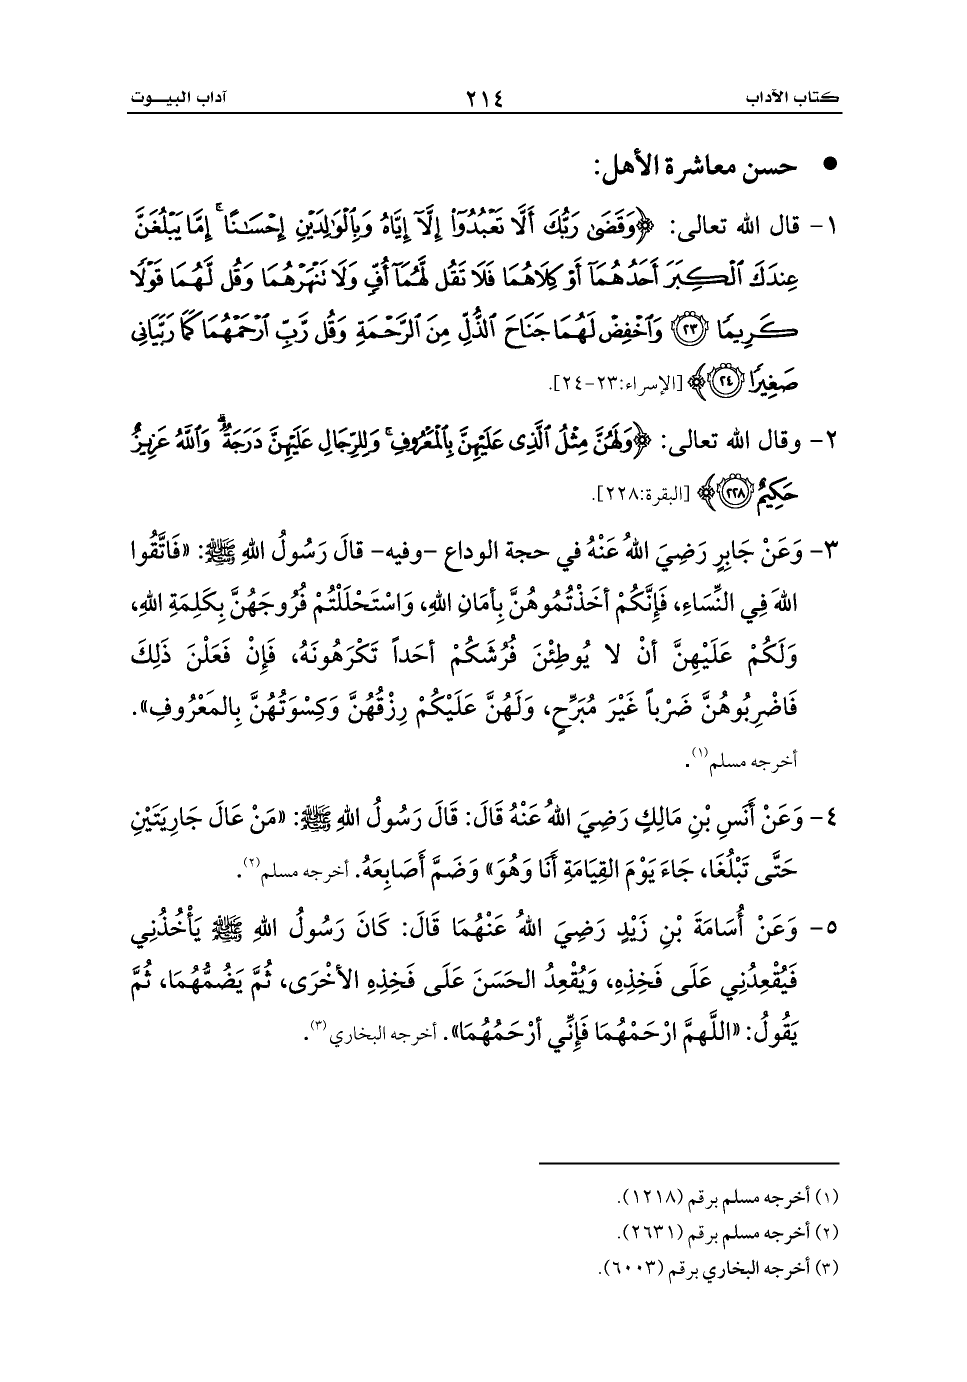 كتاب الآداب ٢١٤ آداب البيـــوت
• حسن معاشرة الأهل:
١- قال الله تعالى: ﴿وَقَضَىٰ رَبُّكَ أَلَّا تَعْبُدُوٓا۟ إِلَّآ إِيَّاهُ وَبِٱلْوَٰلِدَيْنِ إِحْسَـٰنًا ۚ إِمَّا يَبْلُغَنَّ
عِندَكَ ٱلْكِبَرَ أَحَدُهُمَآ أَوْ كِلَاهُمَا فَلَا تَقُل لَّهُمَآ أُفٍّ وَلَا نَنْهَرْهُمَا وَقُل لَّهُمَا قَوْلًا
كَرِيمًا ٢٣ وَٱخْفِضْ لَهُمَا جَنَاحَ ٱلذُّلِّ مِنَ ٱلرَّحْمَةِ وَقُل رَّبِّ ٱرْحَمْهُمَا كَمَا رَبَّيَانِى
صَغِيرًا ٢٤﴾ [الإسراء:٢٣-٢٤].
٢- وقال الله تعالى: ﴿وَلَهُنَّ مِثْلُ ٱلَّذِى عَلَيْهِنَّ بِٱلْمَعْرُوفِ ۚ وَلِلرِّجَالِ عَلَيْهِنَّ دَرَجَةٌ ۗ وَٱللَّهُ عَزِيزٌ
حَكِيمٌ ٢٢٨﴾ [البقرة:٢٢٨].
٣- وَعَنْ جَابِرٍ رَضِيَ اللهُ عَنْهُ في حجة الوداع -وفيه- قالَ رَسُولُ اللهِ ﷺ: «فَاتَّقُوا
اللهَ فِي النِّسَاءِ، فَإِنَّكُمْ أخَذْتُمُوهُنَّ بِأمَانِ اللهِ، وَاسْتَحْلَلْتُمْ فُرُوجَهُنَّ بِكَلِمَةِ اللهِ،
وَلَكُمْ عَلَيْهِنَّ أنْ لا يُوطِئْنَ فُرُشَكُمْ أحَداً تَكْرَهُونَهُ، فَإِنْ فَعَلْنَ ذَلِكَ
فَاضْرِبُوهُنَّ ضَرْباً غَيْرَ مُبَرِّحٍ، وَلَهُنَّ عَلَيْكُمْ رِزْقُهُنَّ وَكِسْوَتُهُنَّ بِالمَعْرُوفِ».
أخرجه مسلم(١).
٤- وَعَنْ أَنَسِ بْنِ مَالِكٍ رَضِيَ اللهُ عَنْهُ قَالَ: قَالَ رَسُولُ اللهِ ﷺ: «مَنْ عَالَ جَارِيَتَيْنِ
حَتَّى تَبْلُغَا، جَاءَ يَوْمَ القِيَامَةِ أَنَا وَهُوَ» وَضَمَّ أَصَابِعَهُ. أخرجه مسلم(٢).
٥- وَعَنْ أُسَامَةَ بْنِ زَيْدٍ رَضِيَ اللهُ عَنْهُمَا قَالَ: كَانَ رَسُولُ اللهِ ﷺ يَأْخُذُنِي
فَيُقْعِدُنِي عَلَى فَخِذِهِ، وَيُقْعِدُ الحَسَنَ عَلَى فَخِذِهِ الأخْرَى، ثُمَّ يَضُمُّهُمَا، ثُمَّ
يَقُولُ: «اللَّهمَّ ارْحَمْهُمَا فَإِنِّي أرْحَمُهُمَا». أخرجه البخاري(٣).
(١) أخرجه مسلم برقم (١٢١٨).
(٢) أخرجه مسلم برقم (٢٦٣١).
(٣) أخرجه البخاري برقم (٦٠٠٣).